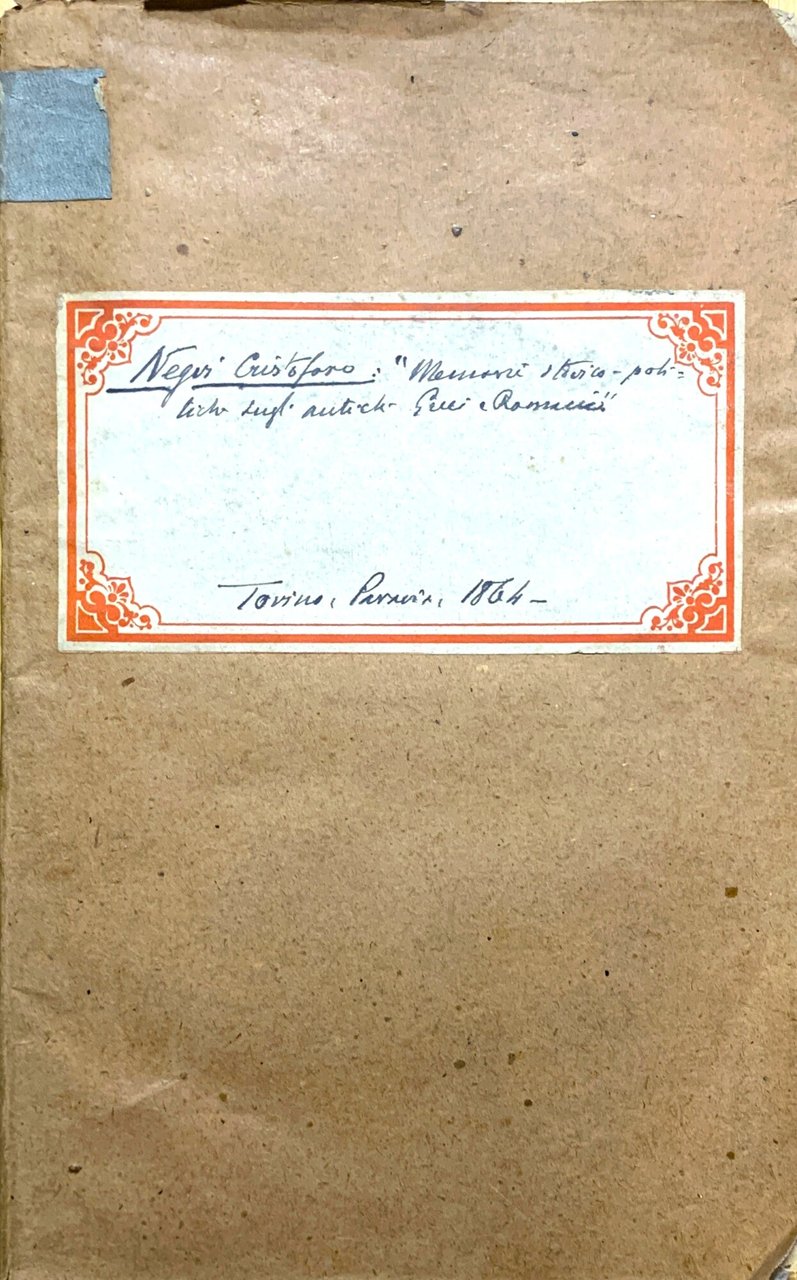 Negri Cristoforo : "Memorie storico-poli=
tiche sugli antichi Greci e Romani"
Torino, Paravia, 1864-